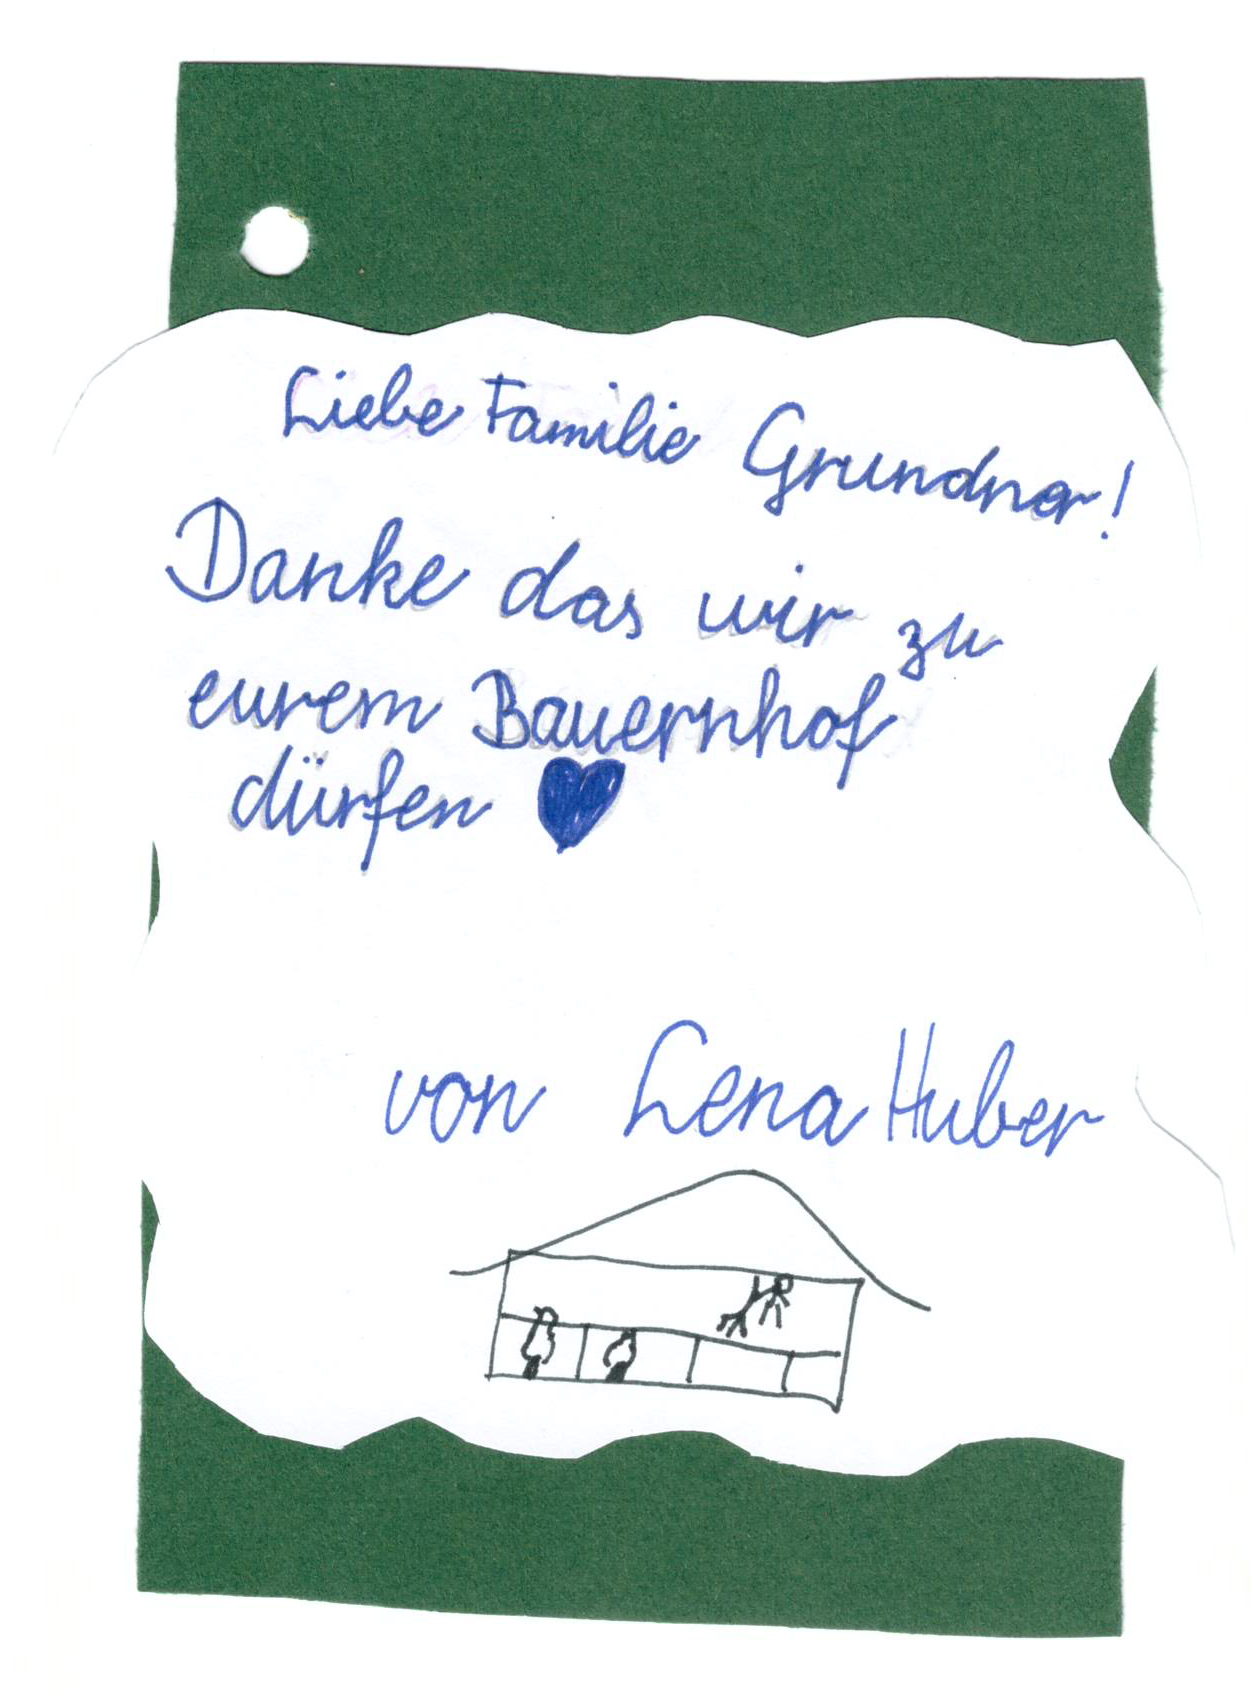 Liebe Familie Grundner!
Danke das wir zu
eurem Bauernhof
dürfen ♥
von Lena Huber